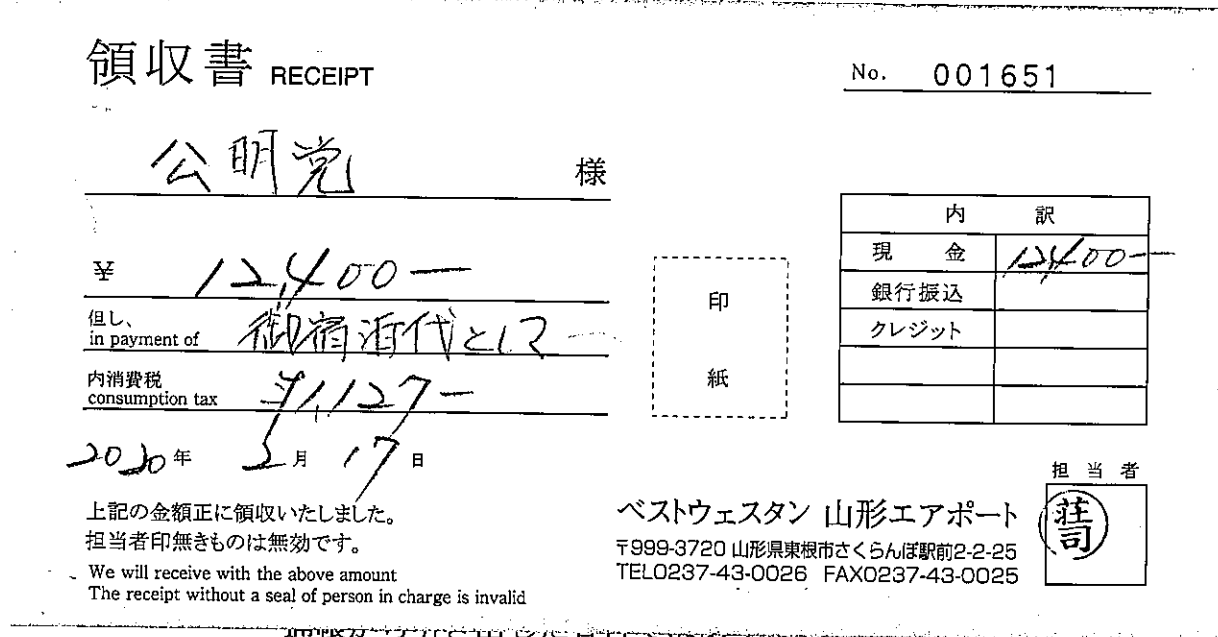 領収書 RECEIPT
No. 001651
公明党 様
¥ 12,400—
但し、
in payment of 御宿泊代として
内消費税
consumption tax ¥1,127—
2020年 2月 17日
上記の金額正に領収いたしました。
担当者印無きものは無効です。
We will receive with the above amount
The receipt without a seal of person in charge is invalid
印
紙
内訳
現金 12,400—
銀行振込
クレジット
担当者
荘司
ベストウェスタン 山形エアポート
〒999-3720 山形県東根市さくらんぼ駅前2-2-25
TEL0237-43-0026 FAX0237-43-0025